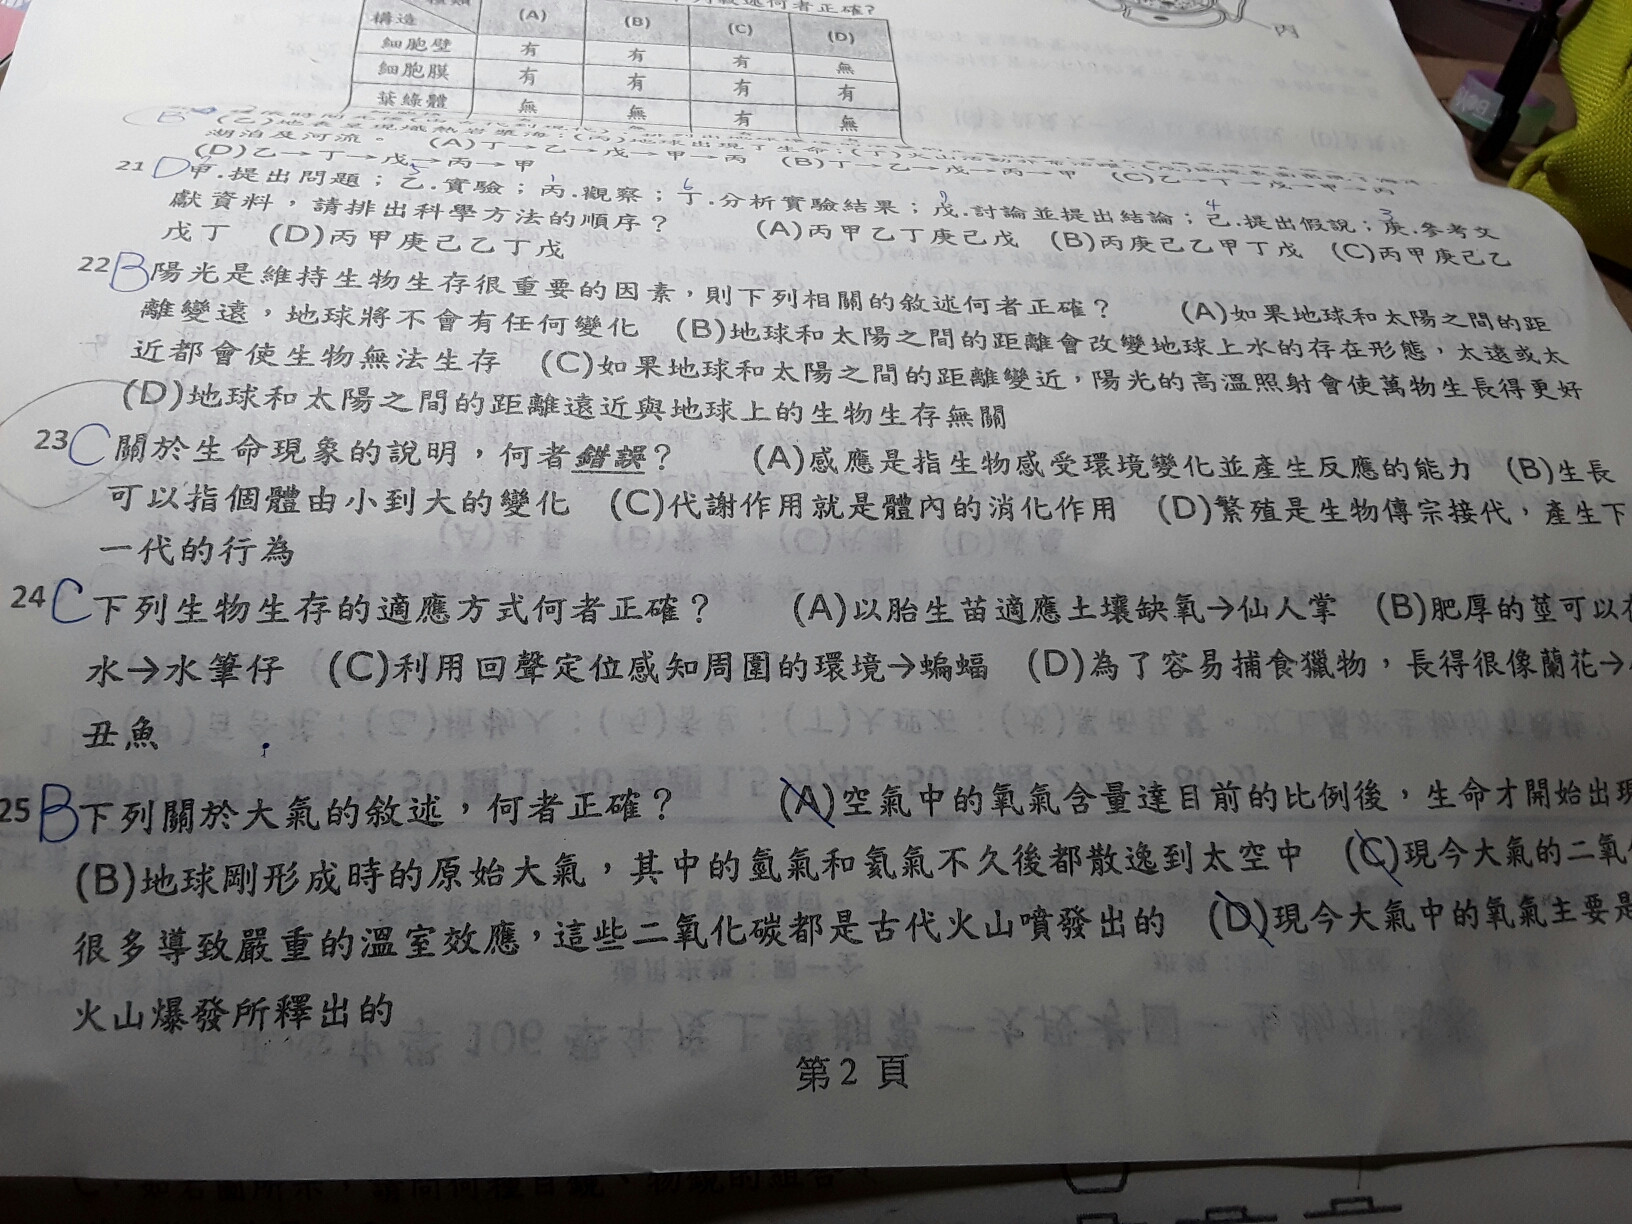 列敘述何者正確?
構造 (A) (B) (C) (D)
丙
細胞壁 有 有 有 無
細胞膜 有 有 有 有
葉綠體 無 無 有 無
湖泊及河流。 (A)丁→乙→戊→甲→丙 (B)丁→乙→戊→丙→甲 (C)乙→丁→戊→甲→丙
(D)乙→丁→戊→丙→甲
21 D 甲.提出問題;乙.實驗;丙.觀察;丁.分析實驗結果;戊.討論並提出結論;己.提出假說;庚.參考文
獻資料,請排出科學方法的順序? (A)丙甲乙丁庚己戊 (B)丙庚己乙甲丁戊 (C)丙甲庚己乙
戊丁 (D)丙甲庚己乙丁戊
22 B 陽光是維持生物生存很重要的因素,則下列相關的敘述何者正確? (A)如果地球和太陽之間的距
離變遠,地球將不會有任何變化 (B)地球和太陽之間的距離會改變地球上水的存在形態,太遠或太
近都會使生物無法生存 (C)如果地球和太陽之間的距離變近,陽光的高溫照射會使萬物生長得更好
(D)地球和太陽之間的距離遠近與地球上的生物生存無關
23 C 關於生命現象的說明,何者錯誤? (A)感應是指生物感受環境變化並產生反應的能力 (B)生長
可以指個體由小到大的變化 (C)代謝作用就是體內的消化作用 (D)繁殖是生物傳宗接代,產生下
一代的行為
24 C 下列生物生存的適應方式何者正確? (A)以胎生苗適應土壤缺氧→仙人掌 (B)肥厚的莖可以
水→水筆仔 (C)利用回聲定位感知周圍的環境→蝙蝠 (D)為了容易捕食獵物,長得很像蘭花→
丑魚
25 B 下列關於大氣的敘述,何者正確? (A)空氣中的氧氣含量達目前的比例後,生命才開始出現
(B)地球剛形成時的原始大氣,其中的氫氣和氦氣不久後都散逸到太空中 (C)現今大氣的二氧
很多導致嚴重的溫室效應,這些二氧化碳都是古代火山噴發出的 (D)現今大氣中的氧氣主要是
火山爆發所釋出的
第2頁